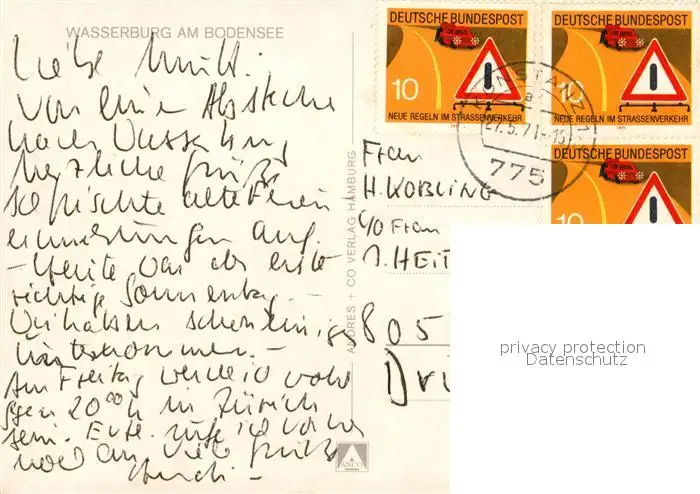 WASSERBURG AM BODENSEE
Liebe Mutti.
Von einem Abstecher
nach Wasserburg
herzliche Grüße
so frischte alte Ferien
erinnerungen auf.
- Heute war der erste
richtige Sonnentag -
Wir haben schon einiges
unternommen. -
Am Freitag werde ich wohl
gegen 20⁰⁰ h in Zürich
sein. Evtl. rufe ich vorher
noch an. Viele Grüße
ANDRES + CO VERLAG HAMBURG
ANCO
DEUTSCHE BUNDESPOST
10
NEUE REGELN IM STRASSENVERKEHR
1971
DEUTSCHE BUNDESPOST
10
NEUE REGELN IM STRASSENVERKEHR
1971
DEUTSCHE BUNDESPOST
10
KONSTANZ 1
a
27.5.71-15
775
Frau
H. KOBLING
c/o Frau
J. HEIT
805
Dr
privacy protection
Datenschutz